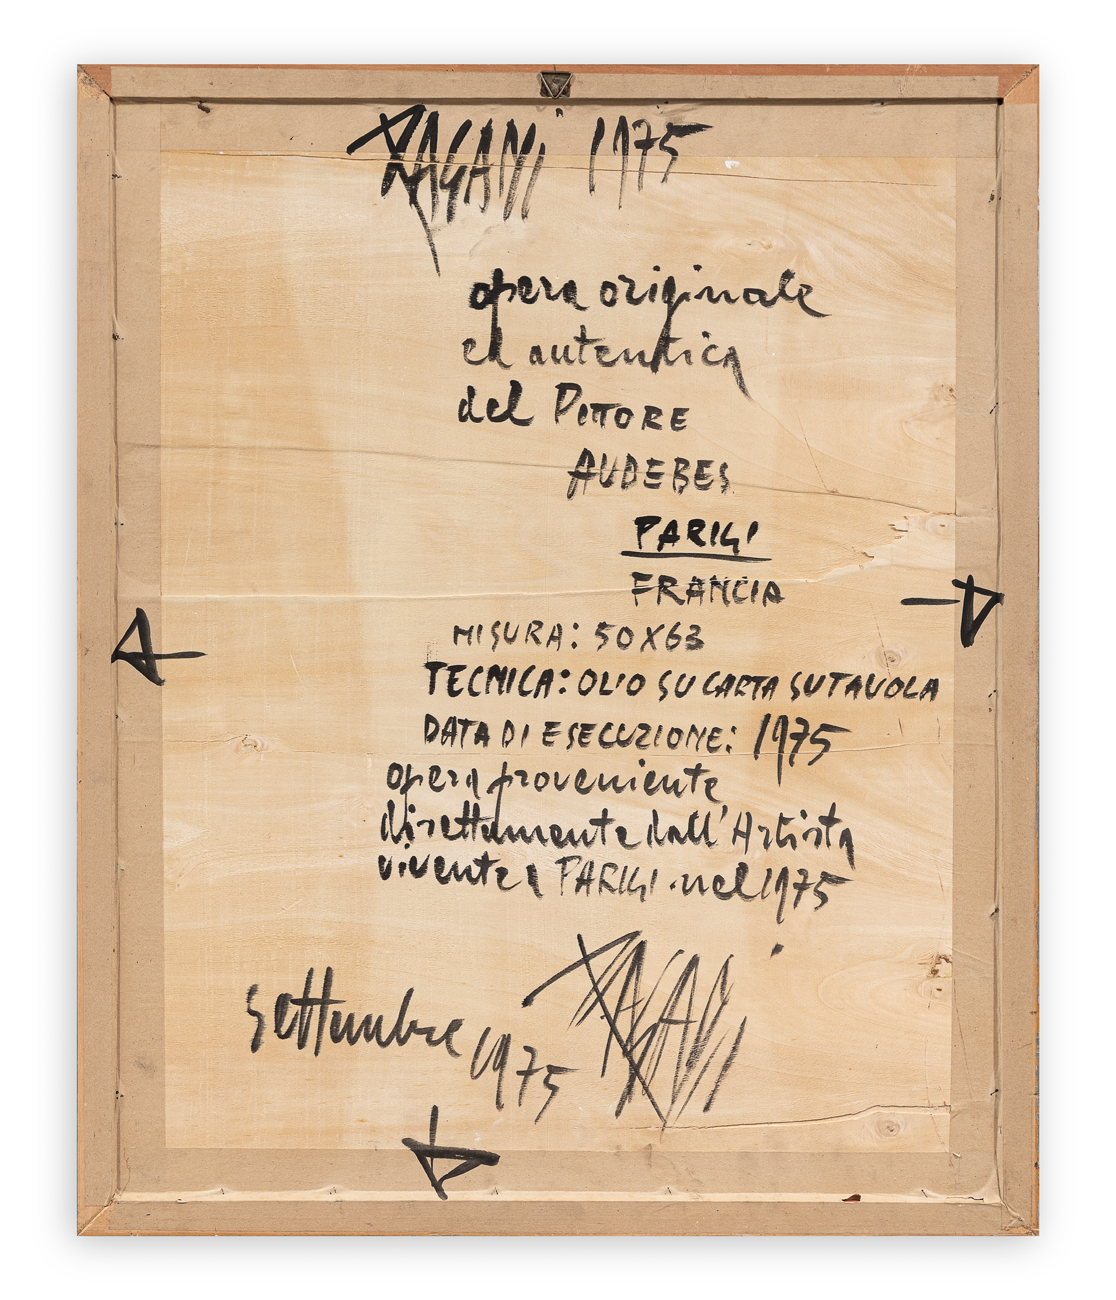 PAGANI 1975
opera originale
ed autentica
del PITTORE
AUDEBES
PARIGI
FRANCIA
MISURA: 50X63
TECNICA: OLIO SU CARTA SU TAVOLA
DATA DI ESECUZIONE: 1975
opera proveniente
direttamente dall'Artista
vivente a PARIGI nel 1975
settembre 1975 PAGANI